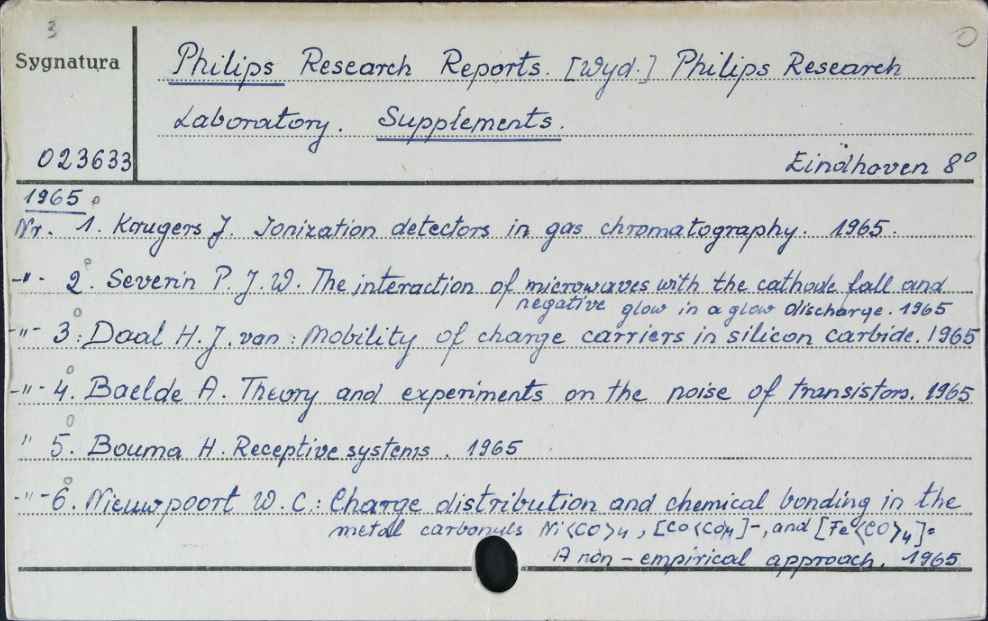 3
Sygnatura
Philips Research Reports. [Wyd.] Philips Research
Laboratory. Supplements.
023633
Eindhoven 8°
1965
Nr. 1. Krugers J. Ionization detectors in gas chromatography. 1965.
-"- 2. Severin P. J. W. The interaction of microwaves with the cathode fall and
negative glow in a glow discharge. 1965
-"- 3: Daal H. J. van: Mobility of charge carriers in silicon carbide. 1965
-"- 4. Baelde A. Theory and experiments on the noise of transistors. 1965
" 5. Bouma H. Receptive systems. 1965
-"- 6. Nieuwpoort W. C.: Charge distribution and chemical bonding in the
metal carbonyls Ni<CO>4, [Co<CO>4]-, and [Fe<CO>4]=
A non-empirical approach. 1965